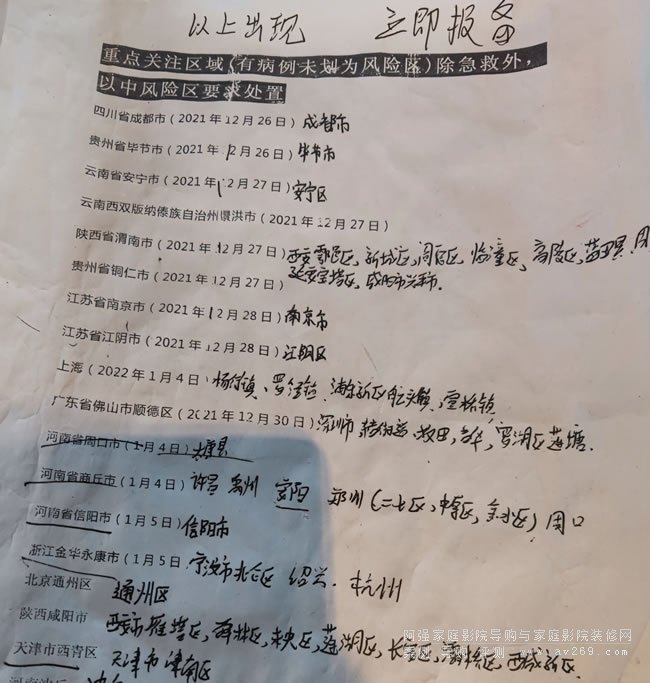 以上出现 立即报备
重点关注区域（有病例未划为风险区）除急救外，
以中风险区要求处置
四川省成都市（2021年12月26日）成都市
贵州省毕节市（2021年12月26日）毕节市
云南省安宁市（2021年12月27日）安宁区
云南西双版纳傣族自治州景洪市（2021年12月27日）
陕西省渭南市（2021年12月27日）西安 鄠邑区，新城区，阎良区，临潼区，高陵区，蓝田县，周
延安宝塔区，咸阳市兴平市.
贵州省铜仁市（2021年12月27日）
江苏省南京市（2021年12月28日）南京市
江苏省江阴市（2021年12月28日）江阴区
上海（2022年1月4日）杨行镇、罗泾镇、浦东新区航头镇，
广东省佛山市顺德区（2021年12月30日）深圳市 龙华 罗湖区莲塘.
河南省周口市（1月4日）太康县
河南省商丘市（1月4日）许昌 禹州 安阳 郑州（二七区，中原区，金水区）周口
河南省信阳市（1月5日）信阳市
浙江金华永康市（1月5日）宁波市北仑区 绍兴．杭州
北京通州区 通州区
陕西咸阳市 西安市雁塔区，碑林区，未央区，莲湖区，长安区，灞桥区，西咸新区.
天津市西青区 天津市津南区
阿强家庭影院导购与家庭影院装修网
案例 实测 评测 www.av269.com